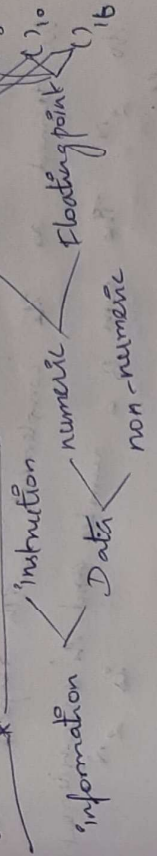 information
instruction
Data
numeric
non-numeric
Floating point
( )10
( )16